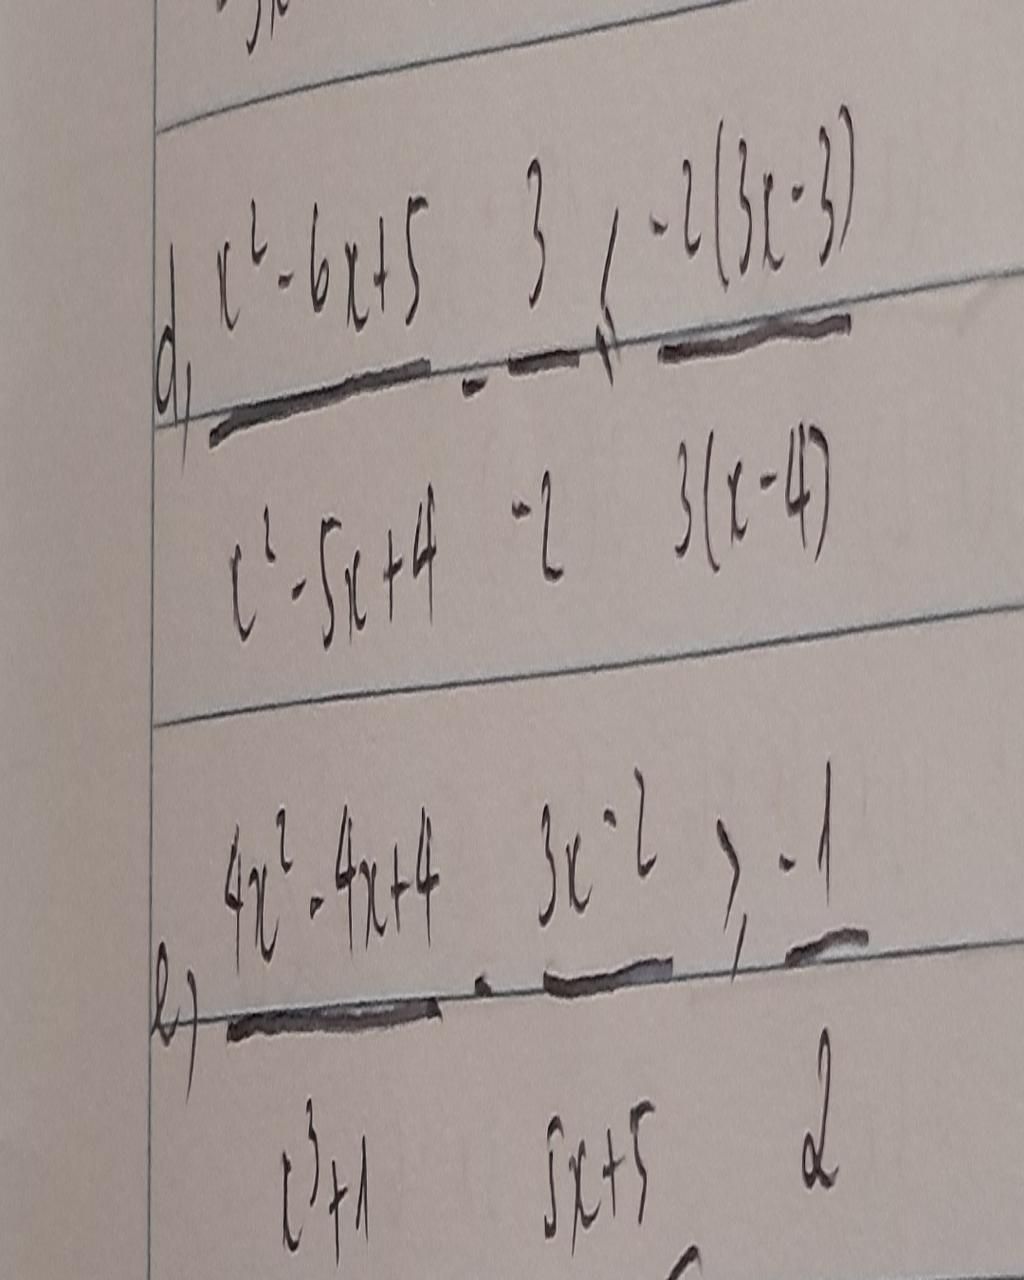 d, x² - 6x + 5 / x² - 5x + 4 - 3 / -2 < -2(3x - 3) / 3(x - 4)
e) 4x² - 4x + 4 / x³ + 1 - 3x - 2 / 5x + 5 ≥ -1 / 2